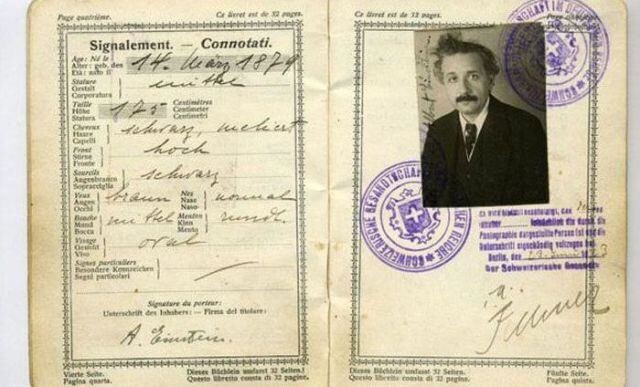 Page quatrième.
Ce livret est de 32 pages.
Signalement. — Connotati.
Age: Né le
Alter: geb. den
Età: nato il
14. März 1879
Stature
Gestalt
Corporatura
mittel
Taille
Höhe
Statura
175
Centimètres
Centimeter
Centimetri
Cheveux
Haare
Capelli
schwarz, meliert
Front
Stirne
Fronte
hoch
Sourcils
Augenbrauen
Sopracciglia
schwarz
Yeux
Augen
Occhi
braun
Nez
Nase
Naso
normal
Bouche
Mund
Bocca
mittel
Menton
Kinn
Mento
rund
Visage
Gesicht
Viso
oval
Signes particuliers
Besondere Kennzeichen
Segni particolari
Signature du porteur:
Unterschrift des Inhabers: — Firma del titolare:
A. Einstein.
Vierte Seite.
Pagina quarta.
Dieses Büchlein umfasst 32 Seiten.
Questo libretto consta di 32 pagine.
Ce livret est de 32 pages.
Page cinquième.
SCHWEIZERISCHE GESANDTSCHAFT
DEUTSCHEN REICHE
Es wird hiermit bescheinigt, dass
die durch die
Photographie dargestellte Person ist und die
Unterschrift eigenhändig vollzogen hat.
Berlin, den
Der Schweizerische Gesandte
Dieses Büchlein umfasst 32 Seiten.
Questo libretto consta di 32 pagine.
Fünfte Seite.
Pagina quinta.